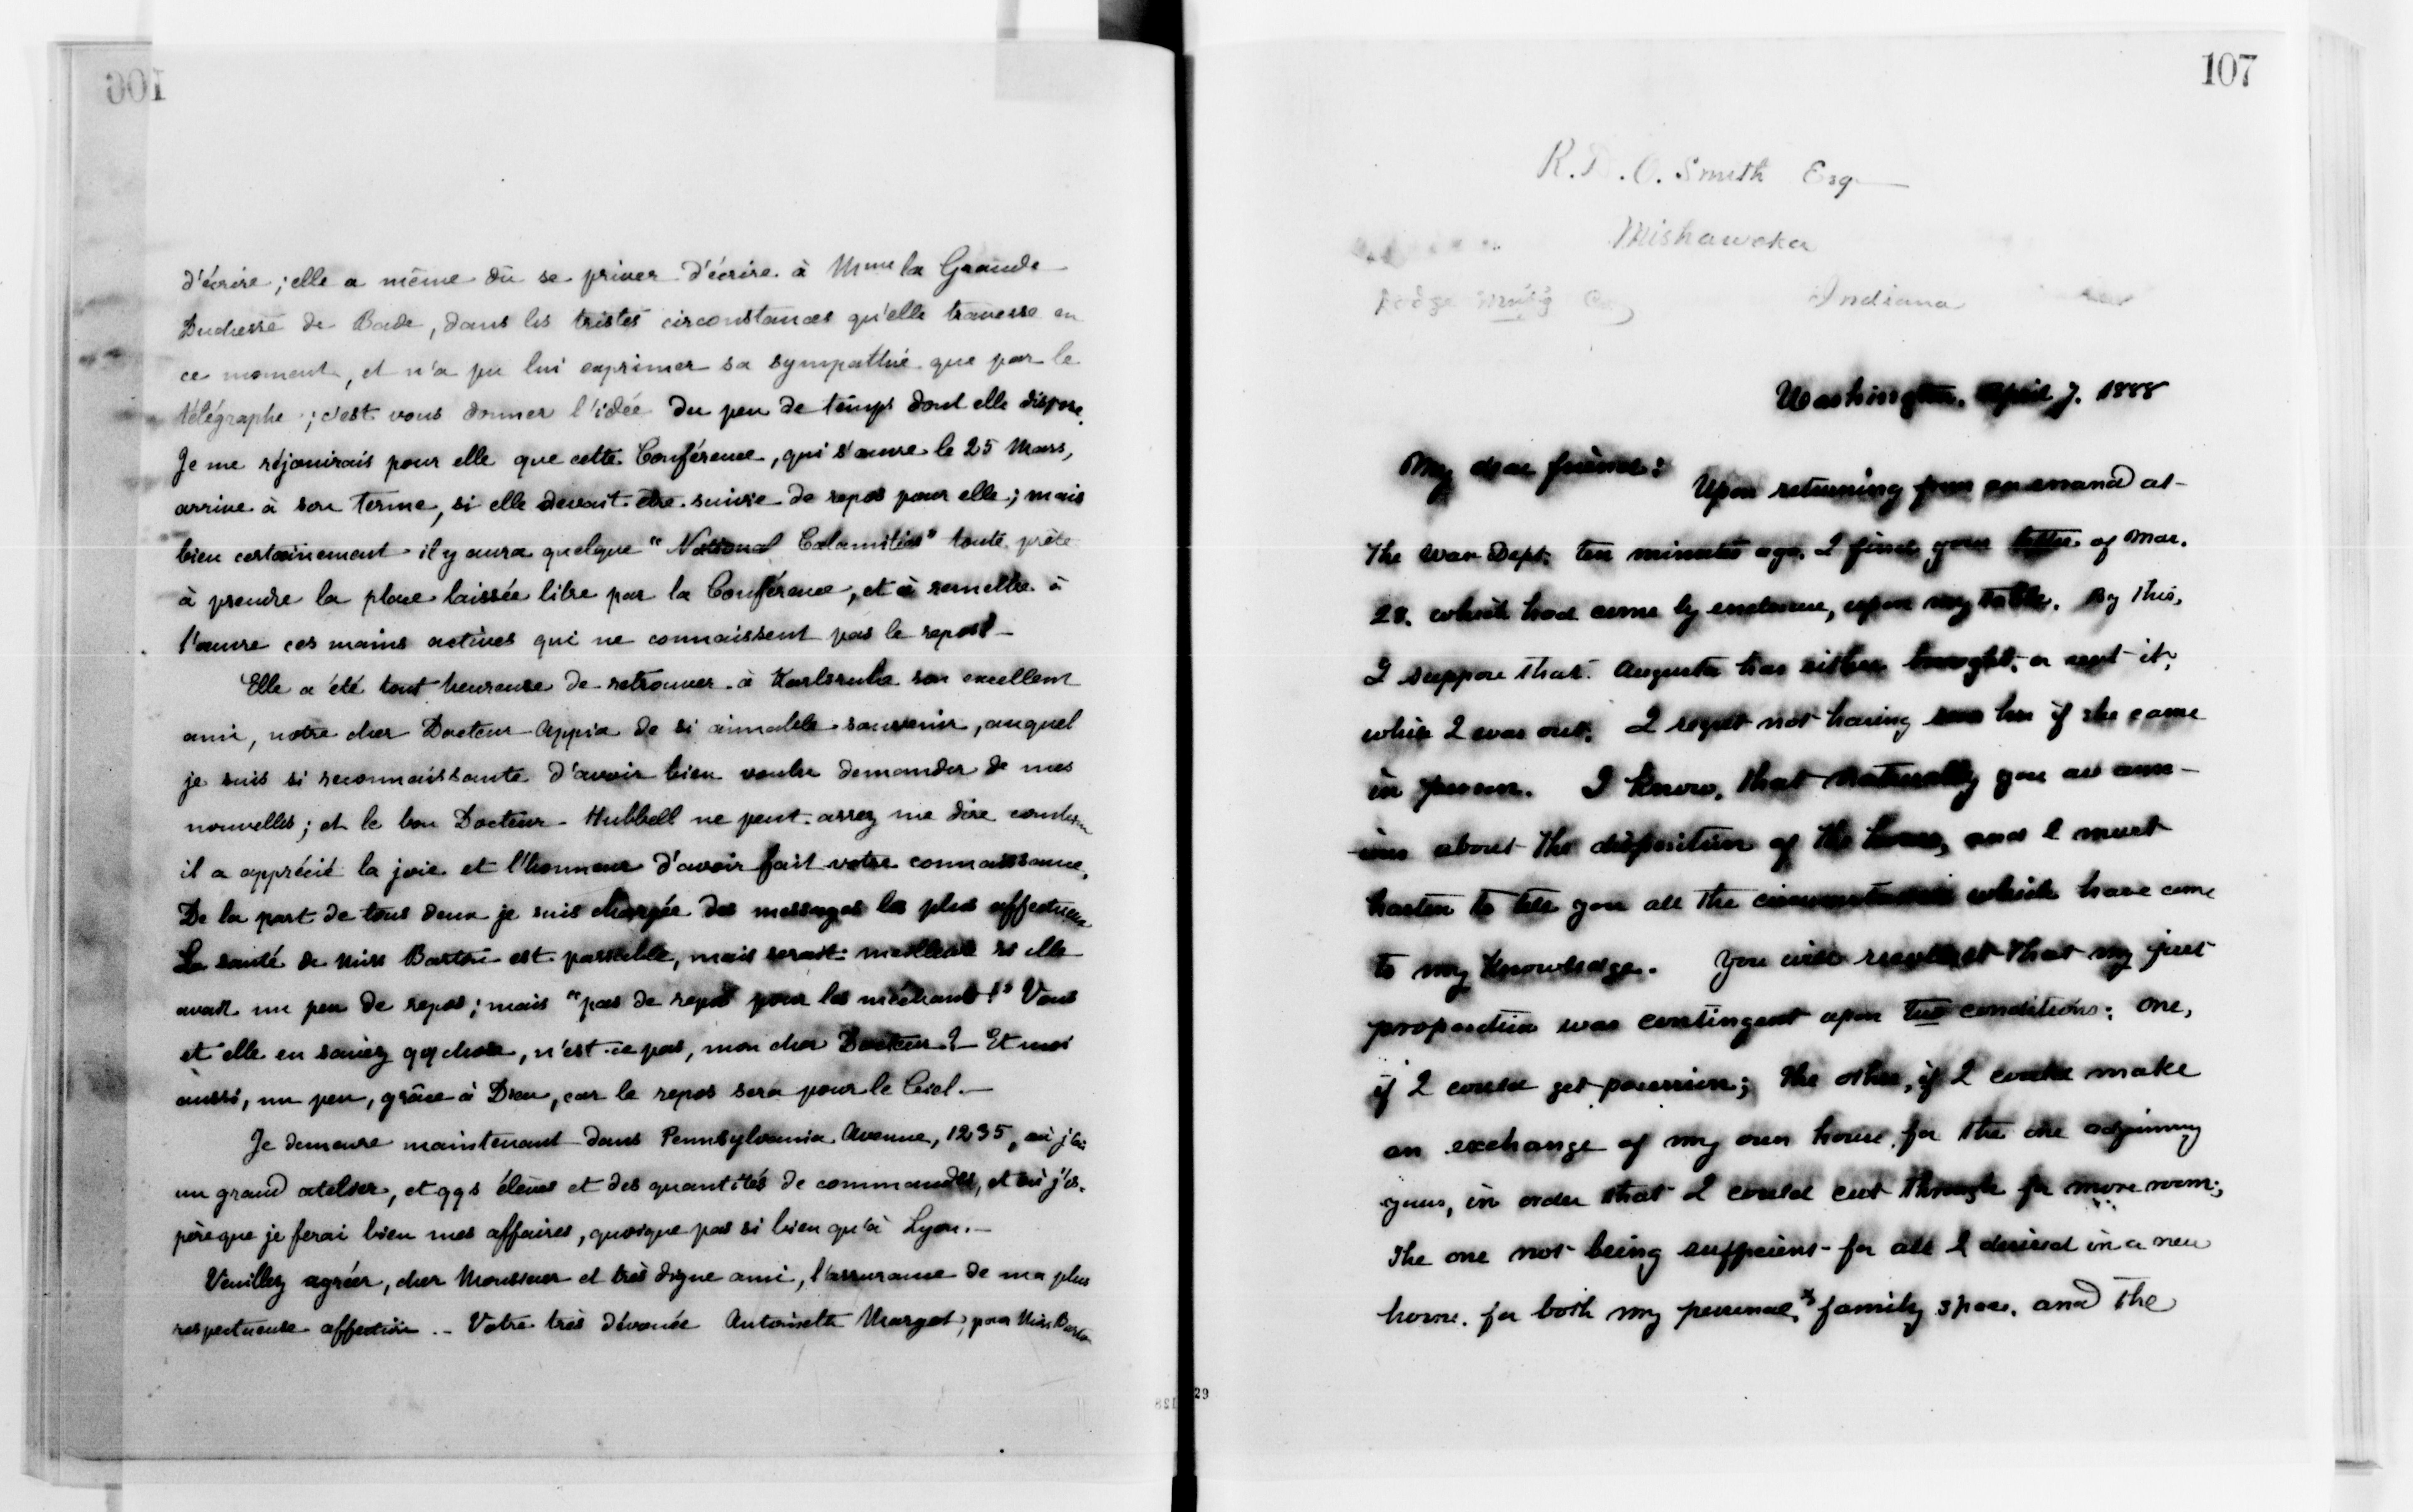 106
d'écrire ; elle a même dû se priver d'écrire à Mme la Grande
Duchesse de Bade, dans les tristes circonstances qu'elle traverse en
ce moment, et n'a pu lui exprimer sa sympathie que par le
télégraphe ; c'est vous donner l'idée du peu de temps dont elle dispose.
Je me réjouirais pour elle que cette Conférence, qui s'ouvre le 25 Mars,
arrive à son terme, si elle devait être suivie de repos pour elle ; mais
bien certainement il y aura quelque "National Calamities" toute prête
à prendre la place laissée libre par la Conférence, et à remettre à
l'œuvre ces mains actives qui ne connaissent pas le repos! —
Elle a été tout heureuse de retrouver à Karlsruhe son excellent
ami, notre cher Docteur Appia de si aimable souvenir, auquel
je suis si reconnaissante d'avoir bien voulu demander de mes
nouvelles ; et le bon Docteur Hubbell ne peut assez me dire combien
il a apprécié la joie et l'honneur d'avoir fait votre connaissance.
De la part de tous deux je suis chargée des messages les plus affectueux
La santé de Miss Barton est passable, mais serait meilleure si elle
avait un peu de repos ; mais "pas de repos pour les méchants!" Vous
et elle en savez qq chose, n'est-ce pas, mon cher Docteur? — Et moi
aussi, un peu, grâce à Dieu, car le repos sera pour le Ciel. —
Je demeure maintenant dans Pennsylvania Avenue, 1235, où j'ai
un grand atelier, et qqs élèves et des quantités de commandes, et où j'es-
père que je ferai bien mes affaires, quoique pas si bien qu'à Lyon. —
Veuillez agréer, cher Monsieur et très digne ami, l'assurance de ma plus
respectueuse affection. — Votre très dévouée Antoinette Margot, pour Miss Barton
107
R. D. O. Smith Esq
Mishawaka
Dodge Mnf'g Co
Indiana
Washington. April 7. 1888
My dear friend:
Upon returning from an errand at
the War Dept. ten minutes ago. I find your letter of Mar.
28. which had come by enclosure, upon my table. By this,
I suppose that Augusta has either brought, or sent it,
while I was out. I regret not having seen her if she came
in person. I know, that naturally you are anx-
ious about the disposition of the house, and I must
hasten to tell you all the circumstances which have come
to my knowledge. You will recollect that my first
proposition was contingent upon two conditions: one,
if I could get possession; the other, if I could make
an exchange of my own house, for the one adjoining
yours, in order that I could cut through for more room;
the one not being sufficient for all I desired in a new
home. for both my personal & family space. and the
29
128